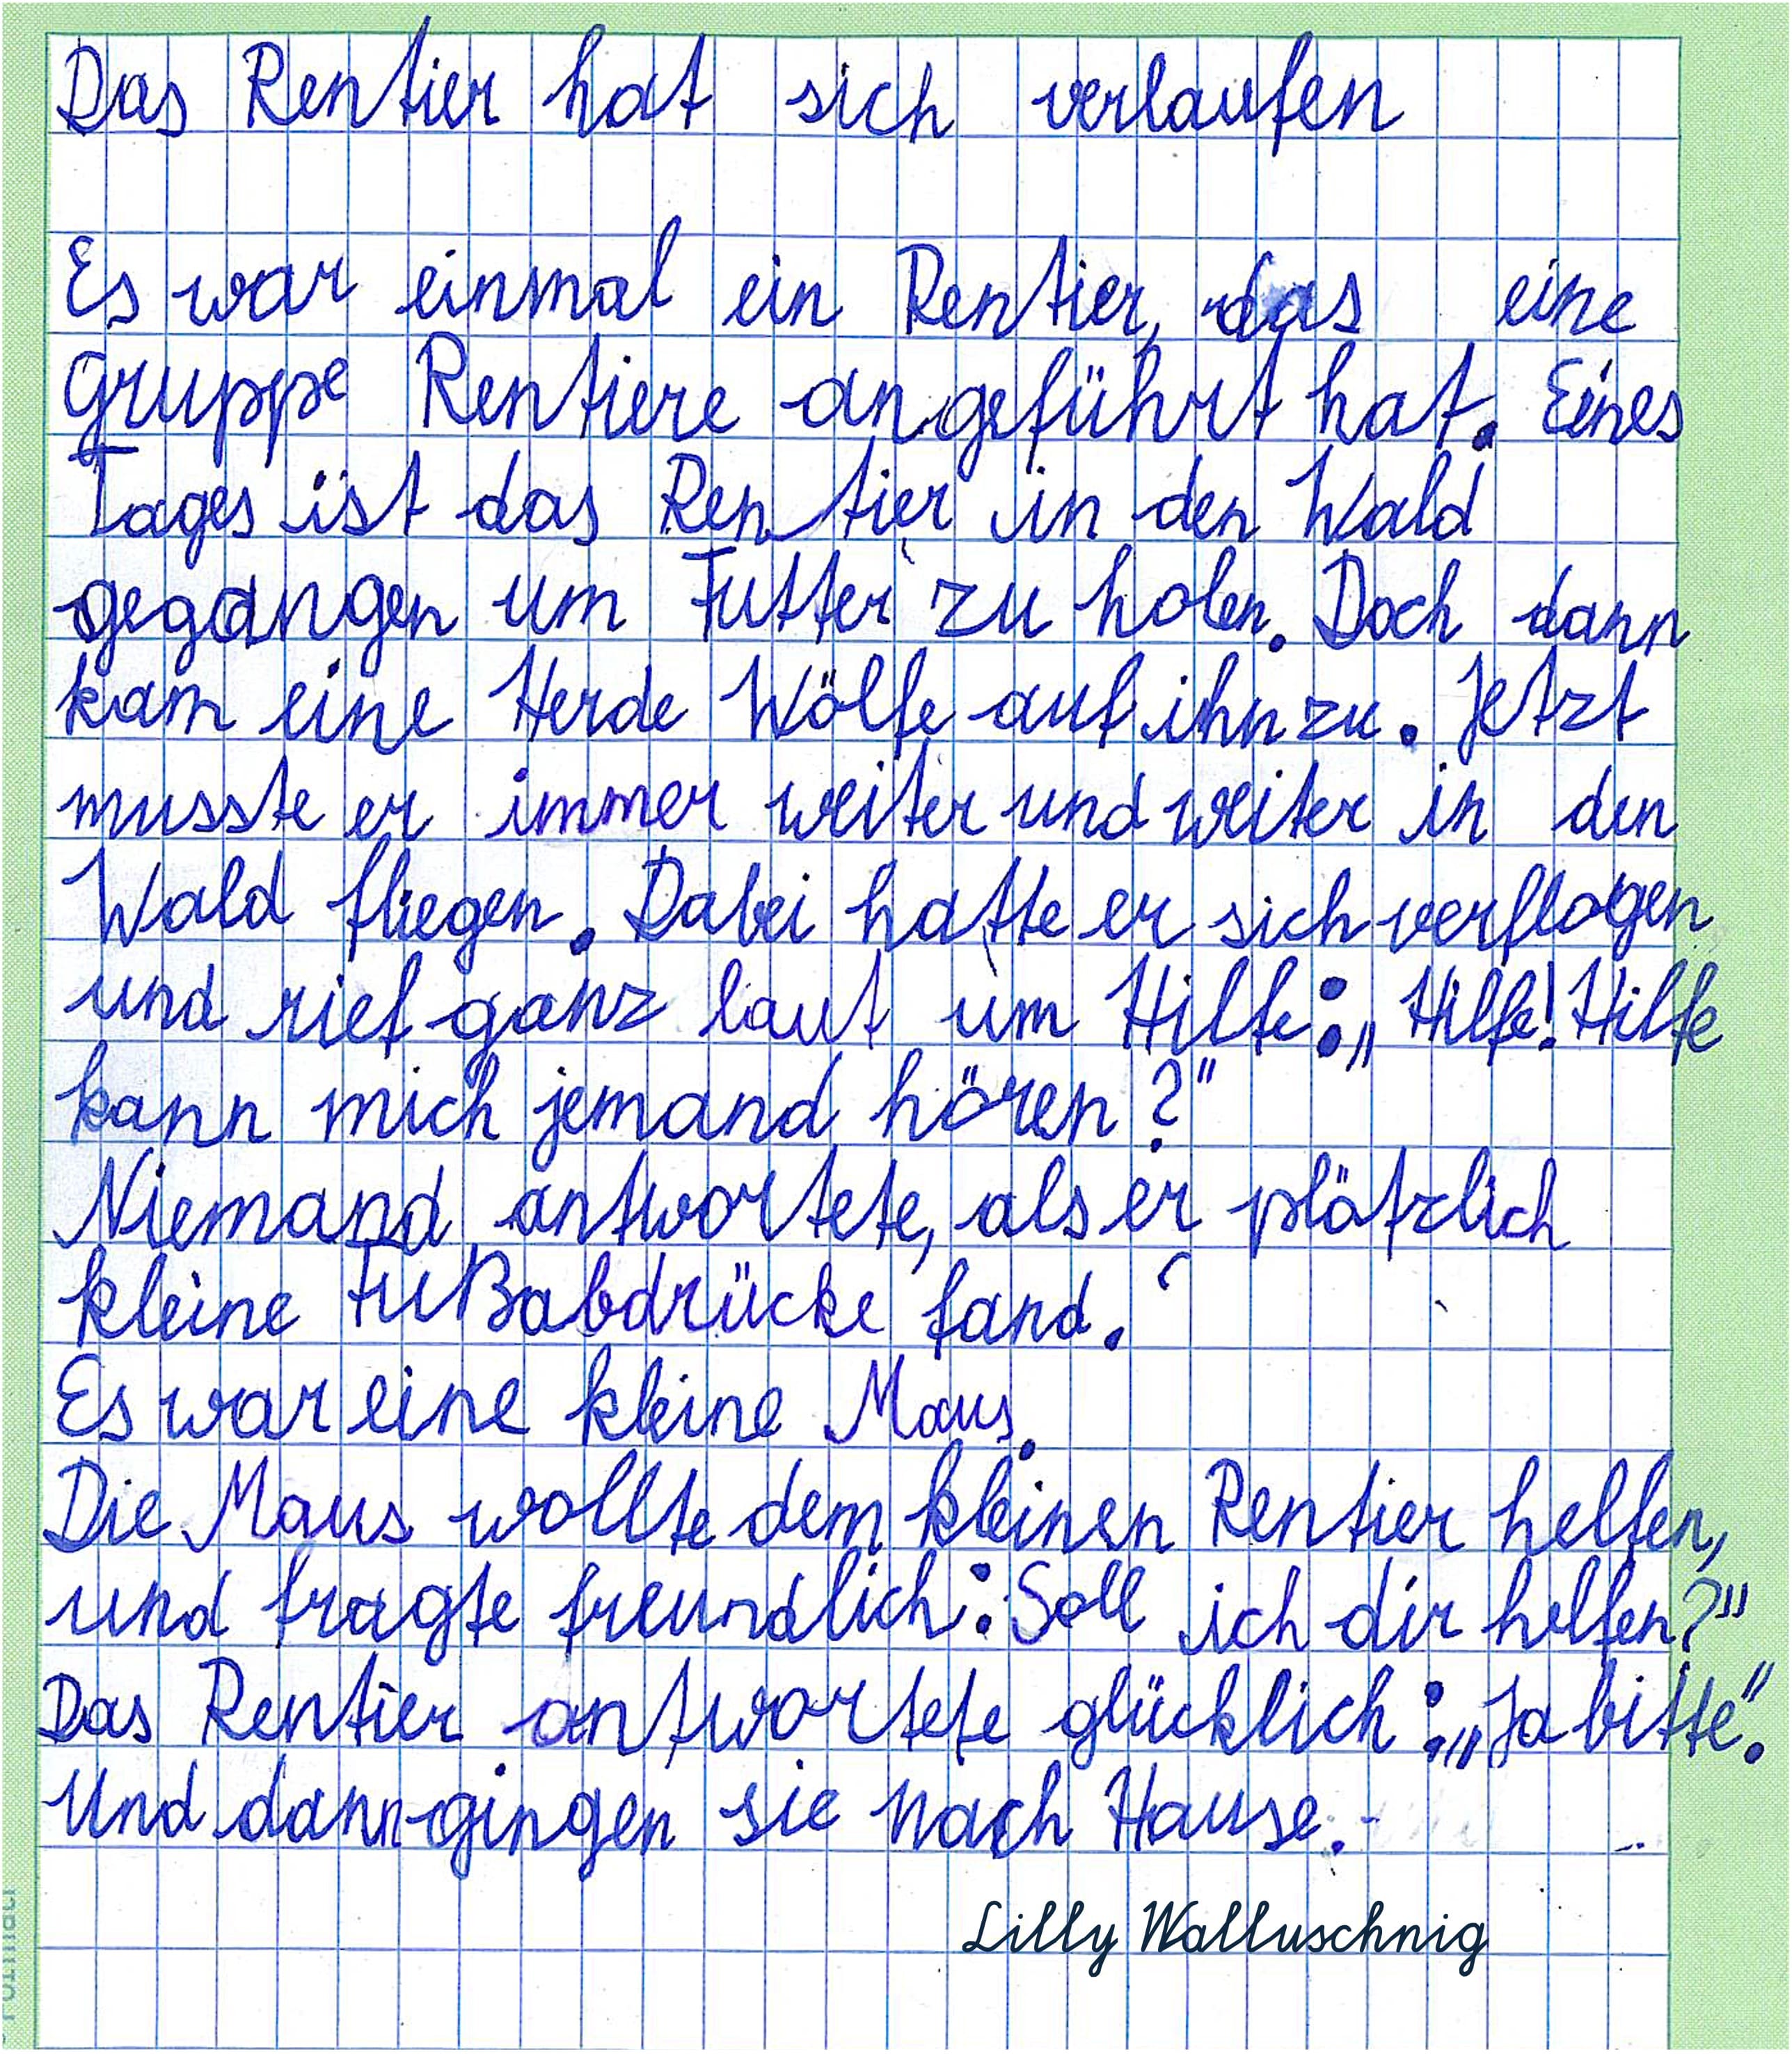 Das Rentier hat sich verlaufen
Es war einmal ein Rentier, das eine
Gruppe Rentiere angeführt hat. Eines
Tages ist das Rentier in den Wald
gegangen um Futter zu holen. Doch dann
kam eine Herde Wölfe auf ihn zu. Jetzt
musste er immer weiter und weiter in den
Wald fliegen. Dabei hatte er sich verflogen
und rief ganz laut um Hilfe: „Hilfe! Hilfe
kann mich jemand hören?"
Niemand antwortete, als er plötzlich
kleine Fußabdrücke fand.
Es war eine kleine Maus.
Die Maus wollte dem kleinen Rentier helfen,
und fragte freundlich: Soll ich dir helfen?"
Das Rentier antwortete glücklich: „Ja bitte".
Und dann gingen sie nach Hause.
Lilly Walluschnig